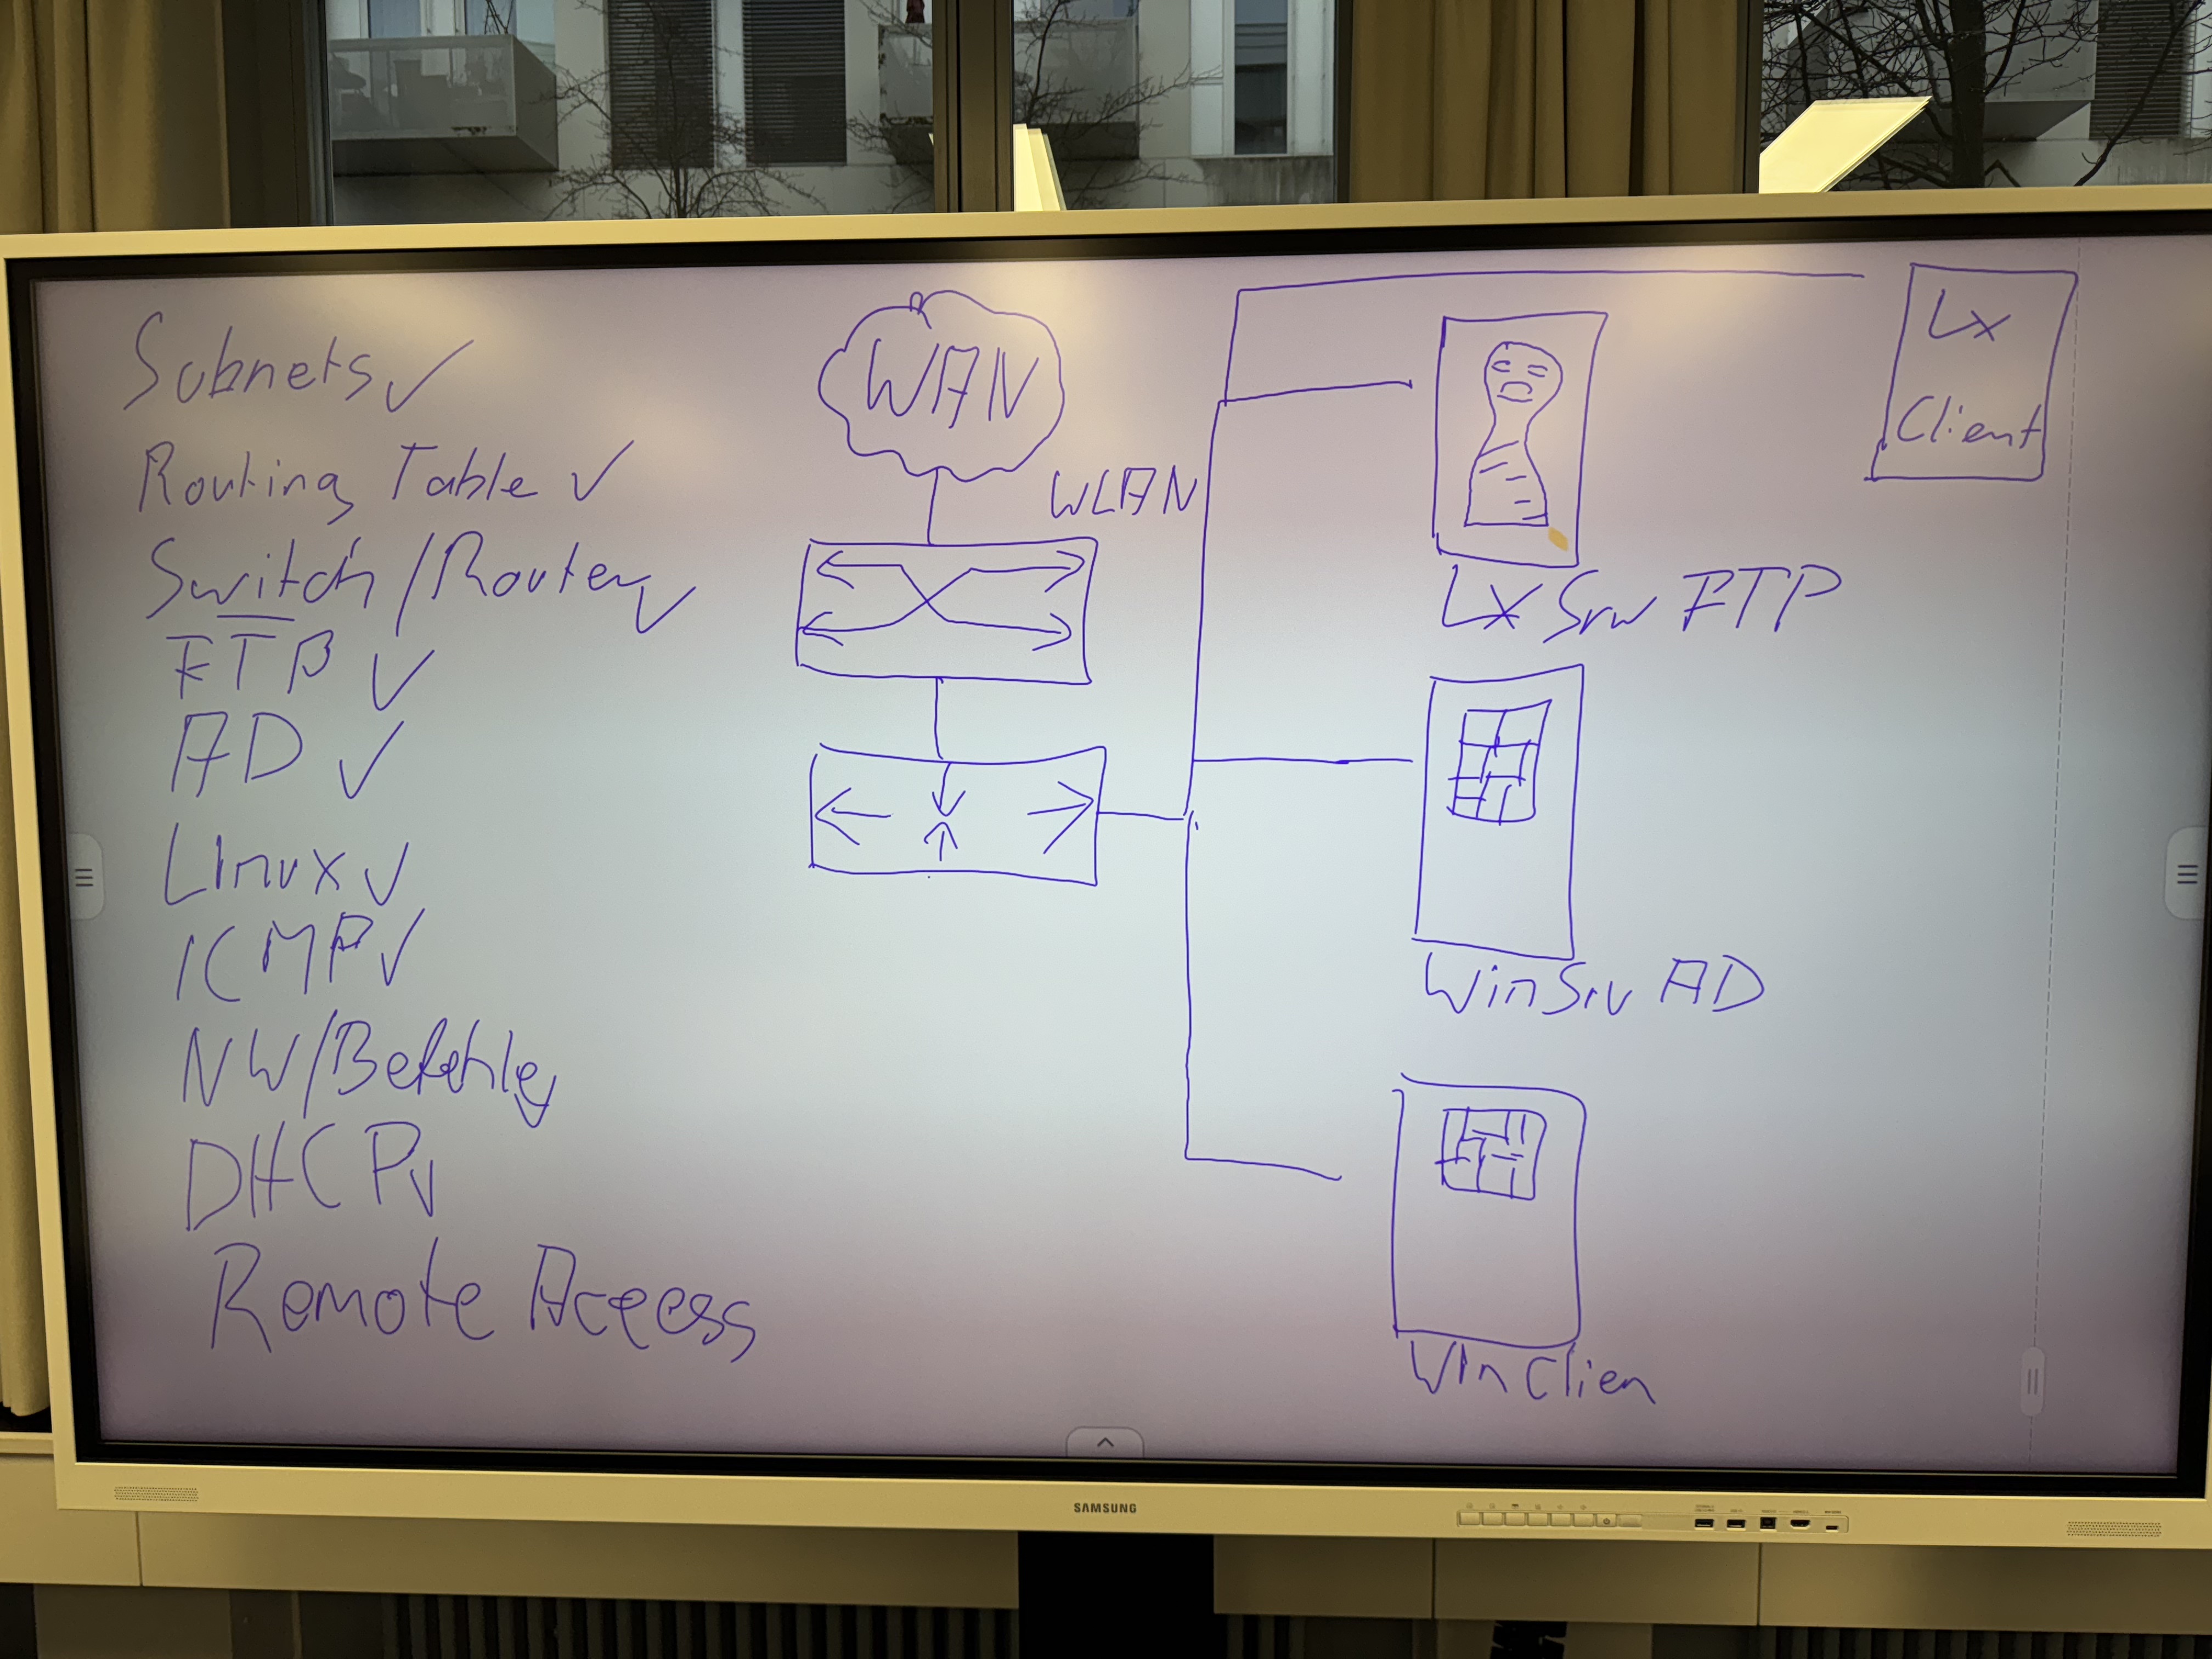 Subnets ✓
Routing Table ✓
Switch/Router ✓
FTP ✓
AD ✓
Linux ✓
ICMP ✓
NW/Befehle ✓
DHCP ✓
Remote Access
WAN
WLAN
Lx
Client
Lx Srw FTP
WinSrv AD
Win Clien
SAMSUNG